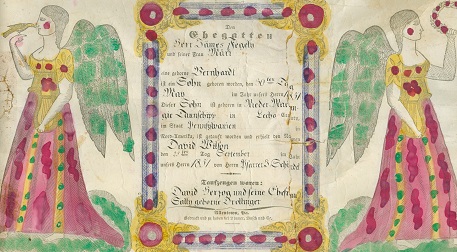 Den
Ehegatten
Herr James Negely
und seiner Frau Mary
eine geborne Bernhardt
ist ein Sohn geboren worden, den Tag
May im Jahr unsers Herrn
Dieser Sohn ist geboren in Neder Macun-
gie Taunschipp in Lecha
im Staat Pennsylvanien
Nord-Amerika, ist getauft worden und erhielt den
David Wilson
den Tag September im
unsers Herrn von Herrn
Taufzeugen waren:
David Herzog und seine Ehefrau
Sally geborne Drollinger
Allentown, Pa.
Gedruckt und zu haben bei